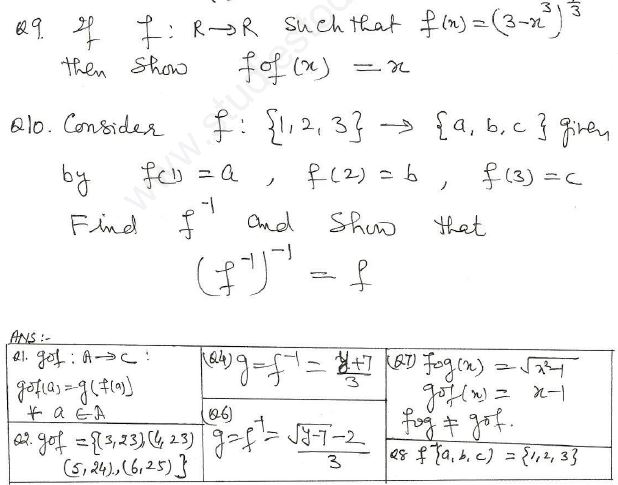 Q9. If f : R→R such that f(x) = (3-x³)^(1/3)
then show fof(x) = x
Q10. Consider f : {1, 2, 3} → {a, b, c} given
by f(1) = a , f(2) = b , f(3) = c
Find f⁻¹ and show that
(f⁻¹)⁻¹ = f
ANS:-
Q1. gof : A→C :
gof(a) = g[f(a)]
∀ a ∈ A
Q2. gof = {(3,23),(4,23)
(5,24),(6,25)}
(Q4) g = f⁻¹ = (y+7)/3
(Q6)
g = f⁻¹ = (√(y-7) - 2)/3
(Q7) fog(x) = √(x²-1)
gof(x) = x-1
fog ≠ gof.
Q8 f⁻¹(a,b,c) = {1,2,3}